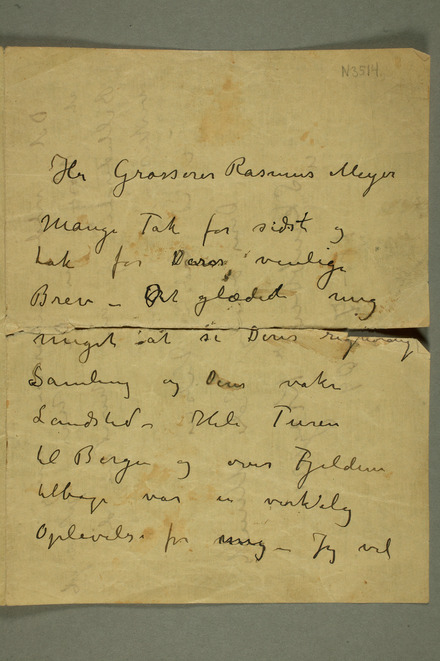 N3514
Hr Grosserer Rasmus Meyer
Mange Tak for sidst og
tak for Deres venlige
Brev – Det glædede mig
meget at se Deres
Samling og Deres vakre
Landsted – Hele Turen
til Bergen og over Fjeldene
tilbage var en virkelig
Oplevelse for mig – Jeg vil